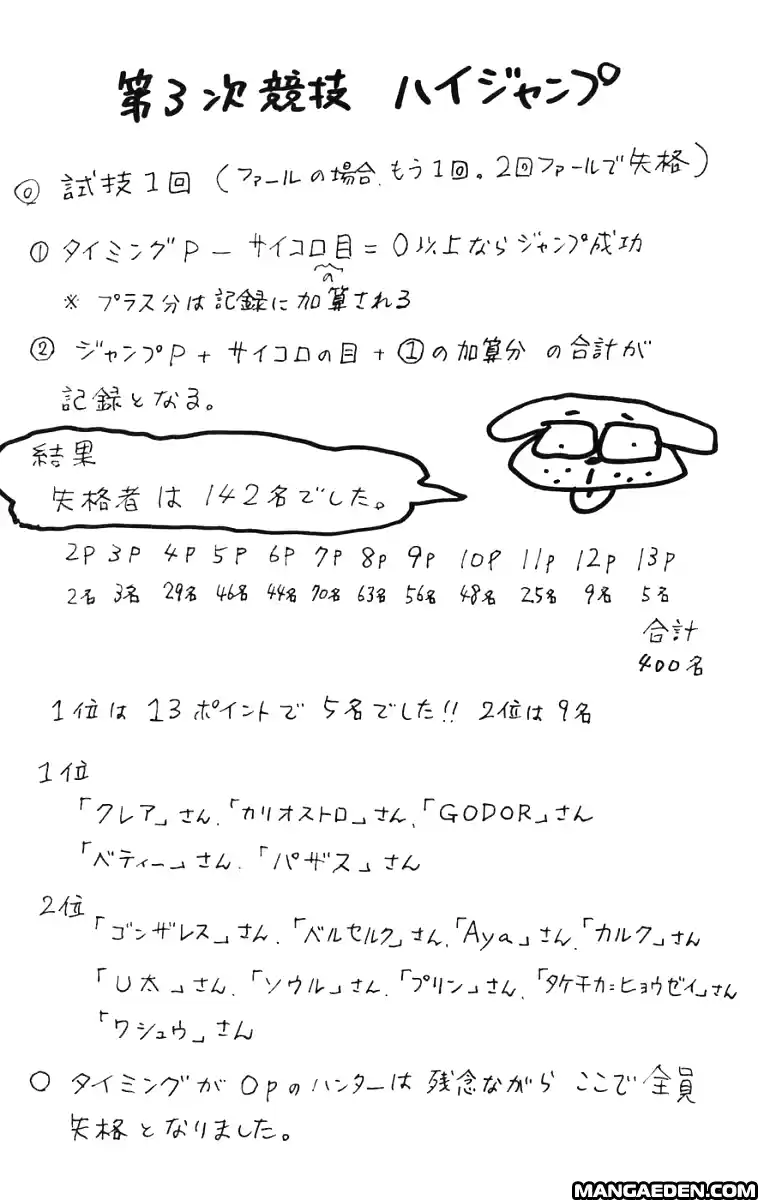 第3次競技 ハイジャンプ
◎ 試技1回(ファールの場合、もう1回。2回ファールで失格)
① タイミングP − サイコロの目 = 0以上ならジャンプ成功
※ プラス分は記録に加算される
② ジャンプP + サイコロの目 + ①の加算分 の合計が
記録となる。
結果
失格者は142名でした。
2P 3P 4P 5P 6P 7P 8P 9P 10P 11P 12P 13P
2名 3名 29名 46名 44名 70名 63名 56名 48名 25名 9名 5名
合計
400名
1位は13ポイントで5名でした!! 2位は9名
1位
「クレア」さん、「カリオストロ」さん、「GODOR」さん
「ベティー」さん、「パザス」さん
2位
「ゴンザレス」さん、「ベルセルク」さん、「Aya」さん、「カルク」さん
「U太」さん、「ソウル」さん、「プリン」さん、「タケチカ=ヒョウゼイ」さん
「ワシュウ」さん
○ タイミングが0Pのハンターは残念ながらここで全員
失格となりました。
MANGAEDEN.COM